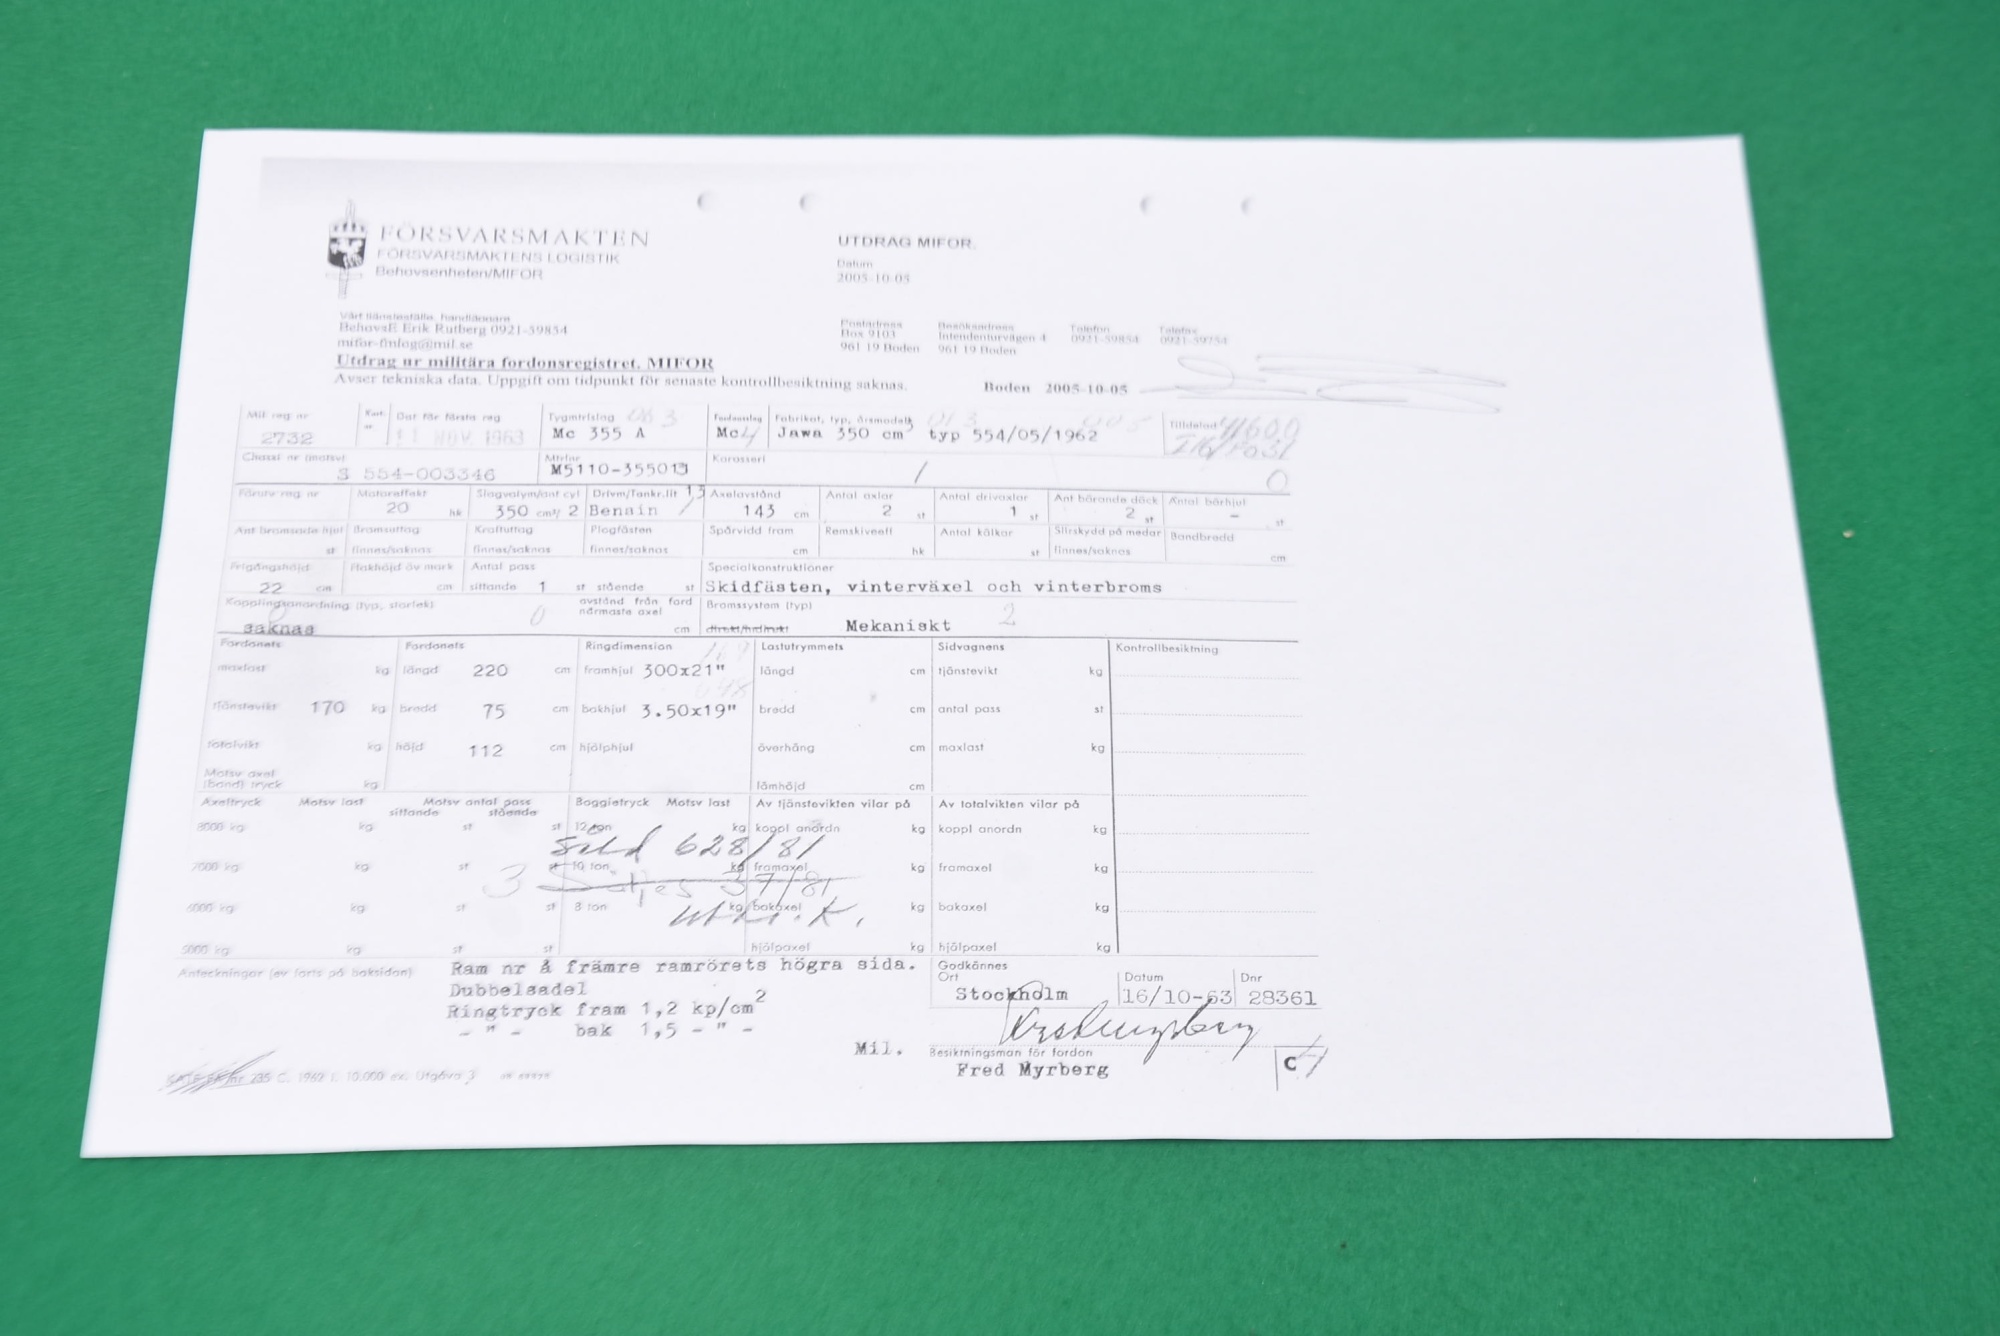 FÖRSVARSMAKTEN
FÖRSVARSMAKTENS LOGISTIK
Behovsenheten/MIFOR
UTDRAG MIFOR.
Datum
2005-10-05
Vårt tjänsteställe, handläggare
BehovsE Erik Rutberg 0921-39854
mifor-fmlog@mil.se
Postadress Besöksadress Telefon Telefax
Box 9103 Intendenturvägen 4 0921-39854
961 19 Boden 961 19 Boden
Utdrag ur militära fordonsregistret. MIFOR
Avser tekniska data. Uppgift om tidpunkt för senaste kontrollbesiktning saknas. Boden 2005-10-05
Mil reg nr Dat för första reg Tygmtrlslag Fordonslag Fabrikat, typ, årsmodell Tilldelad
2732 11 NOV. 1963 Mc 355 A Mc Jawa 350 cm³ typ 554/05/1962
Chassi nr (motsv) Mtrlnr Karosseri
S 554-003346 M5110-355013 / 0
Förutv reg nr Motoreffekt Slagvolym/ant cyl Drivm/Tankr.lit Axelavstånd Antal axlar Antal drivaxlar Ant bärande däck Antal bärhjul
20 hk 350 cm³/ 2 Bensin 143 cm 2 st 1 st 2 st - st
Ant bromsade hjul Bromsuttag Kraftuttag Plogfästen Spårvidd fram Remskiveeff Antal kälkar Slirskydd på medar Bandbredd
st finnes/saknas finnes/saknas finnes/saknas cm hk st finnes/saknas cm
Frigångshöjd Flakhöjd öv mark Antal pass Specialkonstruktioner
22 cm cm sittande 1 st stående st Skidfästen, vinterväxel och vinterbroms
Kopplingsanordning (typ, storlek) 0 avstånd från ford närmaste axel Bromssystem (typ) 2
saknas cm direkt/indirekt Mekaniskt
Fordonets Fordonets Ringdimension Lastutrymmets Sidvagnens Kontrollbesiktning
maxlast kg längd 220 cm framhjul 300x21" längd cm tjänstevikt kg
tjänstevikt 170 kg bredd 75 cm bakhjul 3.50x19" bredd cm antal pass st
totalvikt kg höjd 112 cm hjälphjul överhäng cm maxlast kg
Motsv axel
(band) tryck kg lämhöjd cm
Axeltryck Motsv last Motsv antal pass Boggietryck Motsv last Av tjänstevikten vilar på Av totalvikten vilar på
sittande stående
8000 kg kg st st 12 ton kg koppl anordn kg koppl anordn kg
Såld 628/81
7000 kg kg st st 10 ton kg framaxel kg framaxel kg
3 Säljes 37/81
6000 kg kg st st 8 ton kg bakaxel kg bakaxel kg
5000 kg kg st st hjälpaxel kg hjälpaxel kg
Anteckningar (ev forts på baksidan) Ram nr å främre ramrörets högra sida. Godkännes
Dubbelsadel Ort Datum Dnr
Stockholm 16/10-63 28361
Ringtryck fram 1,2 kp/cm²
- " - bak 1,5 - " -
Mil. Besiktningsman för fordon
Fred Myrberg C
nr 235 C. 1962 1. 10.000 ex. Utgåva 3